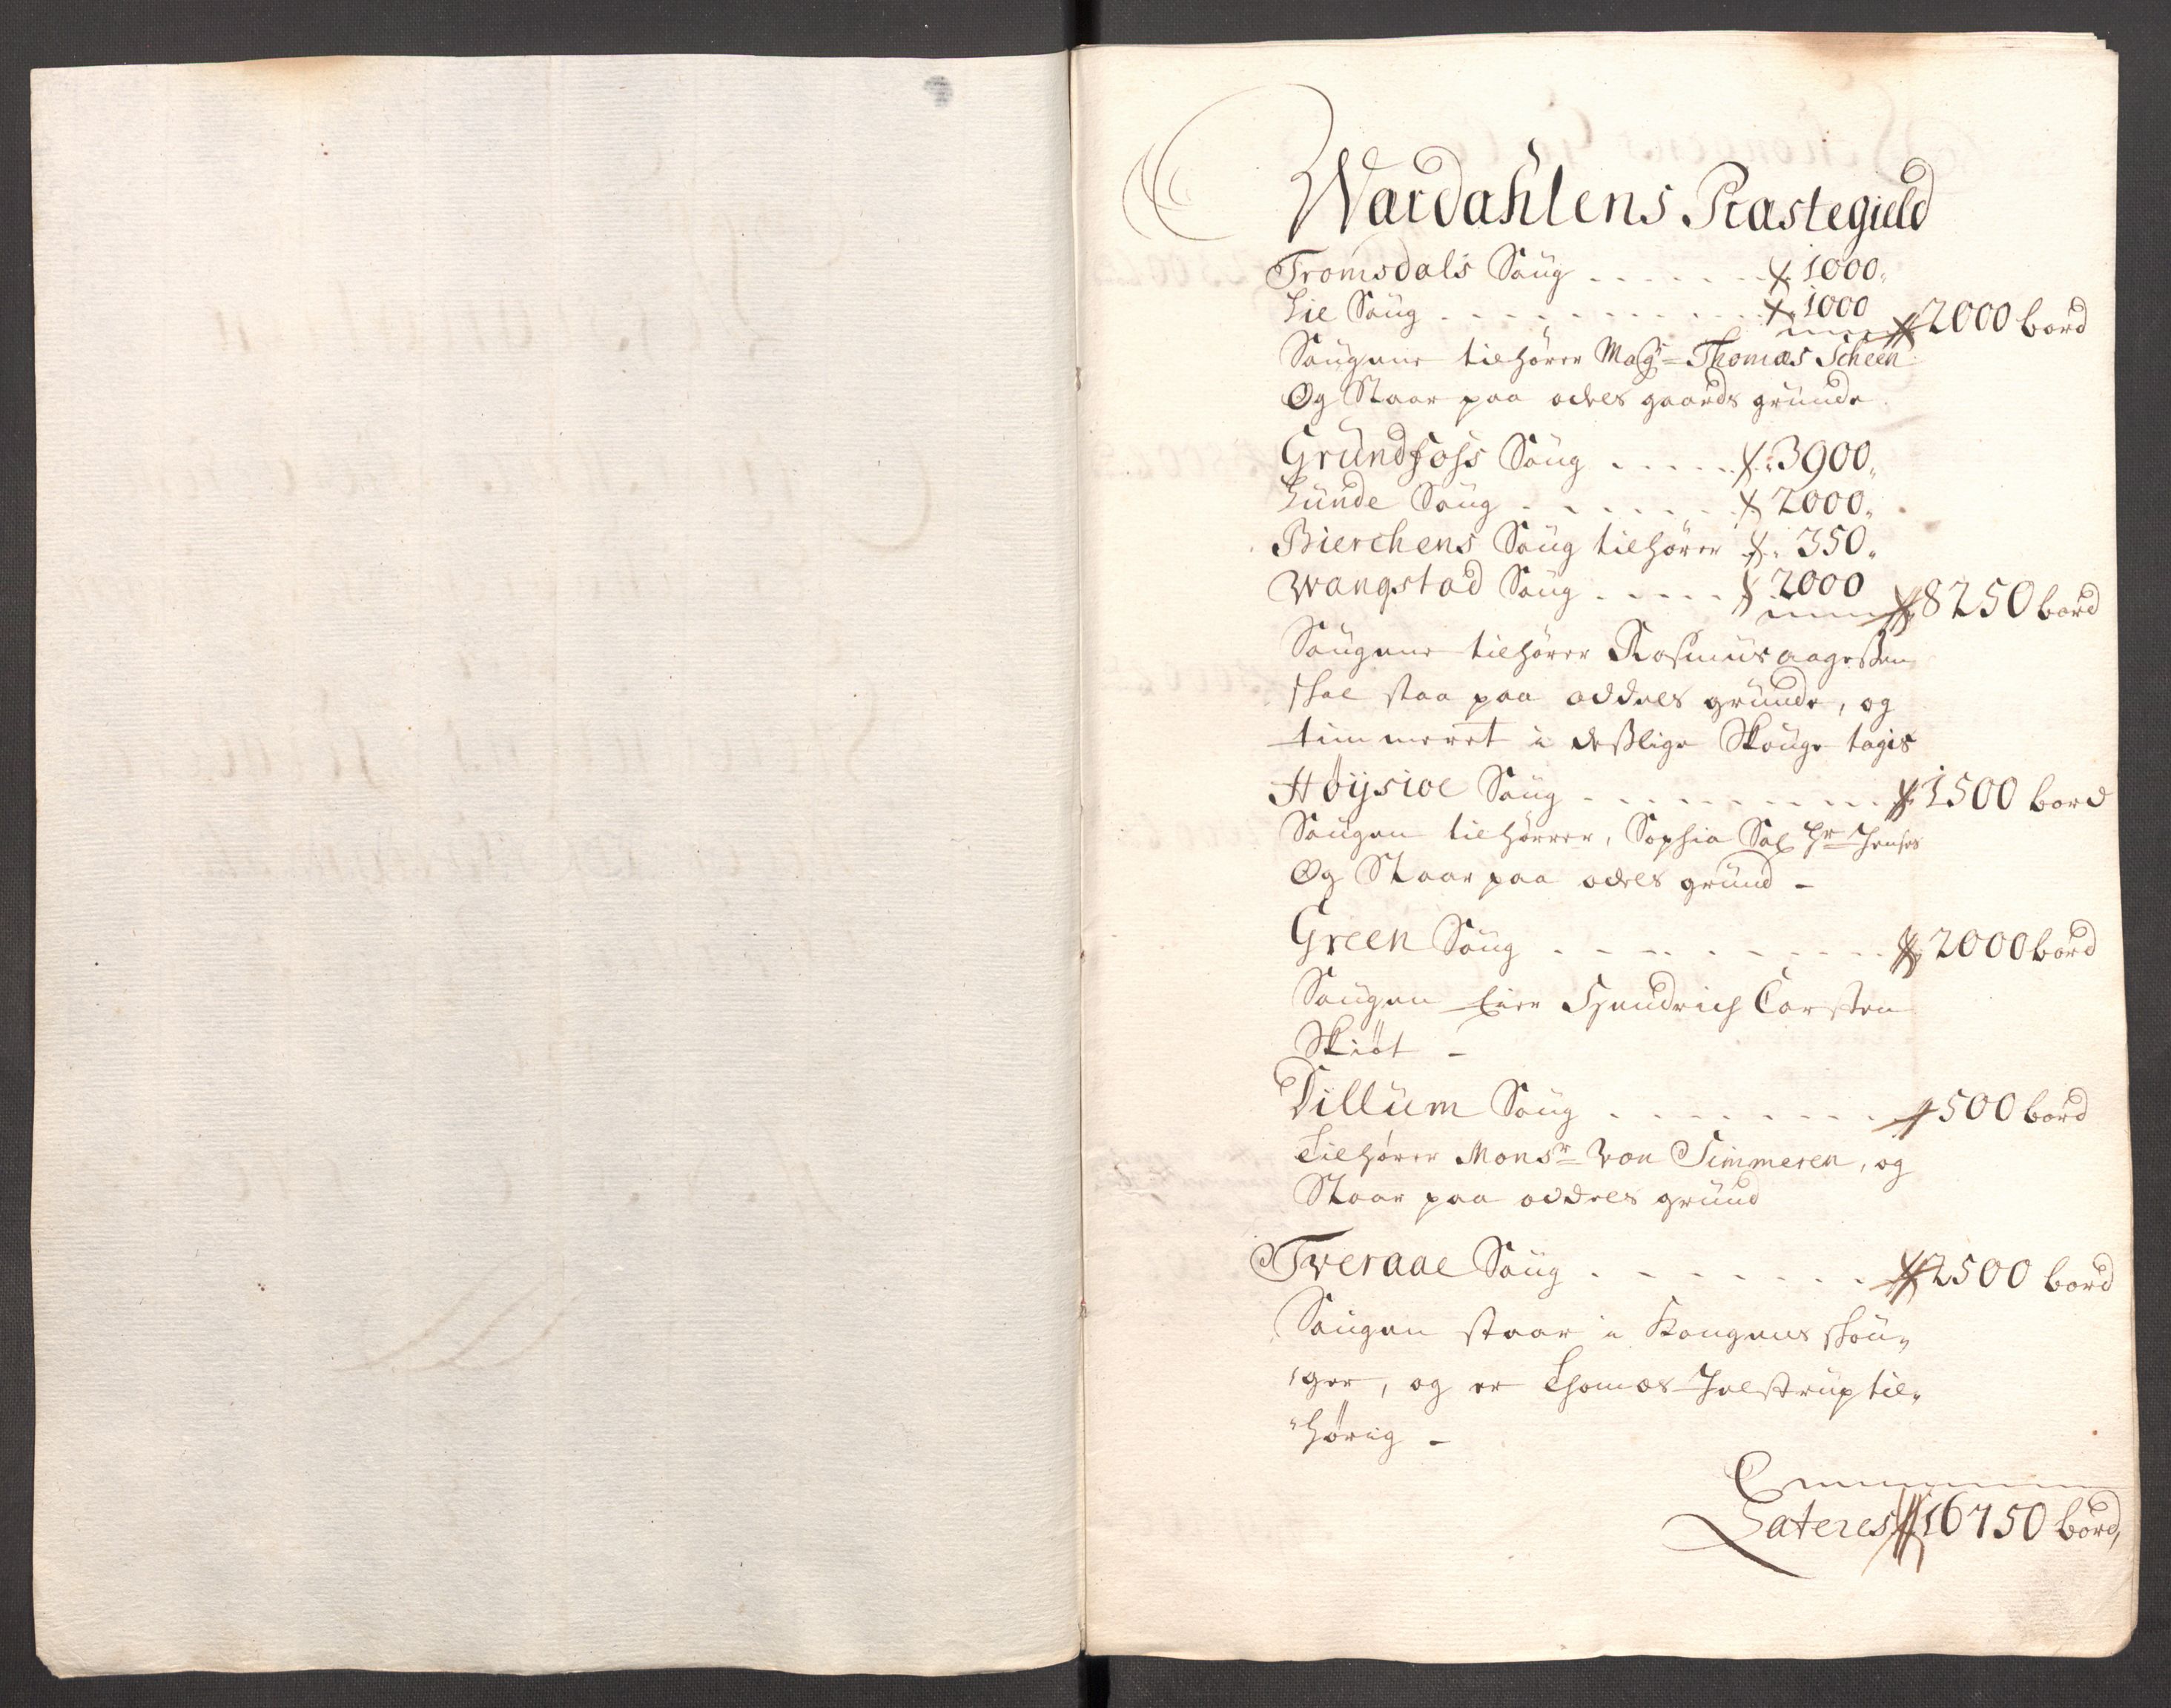 Wardahlens Præstegield
Tromsdals Saug . . . . . . 1000
Lie Saug . . . . . . . . . . 1000 2000 bord
Saugene tilhører Magr Thomas Scheen
Og Staar paa odels gaards grunde
Grundfoss Saug . . . . . 3900
Lunde Saug . . . . . . 2000
Bierchens Saug tilhører 350
Wangstad Saug . . . . . 2000 8250 bord
Saugene tilhører Rasmus aagessen
skal staa paa oddels grunde, og
timmeret i deslige Skouge tages
Høysioe Saug . . . . . . . . . 1500 bord
Saugen tilhørrer, Sophia Sal Hr Jenses
Og Staar paa odels grund -
Green Saug . . . . . . . . . 2000 bord
Saugen Eier Hendrich Carsten
Skiøt -
Dillum Saug . . . . . . . . 500 bord
Tilhører Monsr von Timmeren, og
Staar paa oddels grund
Tveraae Saug . . . . . . . 2500 bord
Saugen staar i Kongens skou-
ger, og er Thomas Jelstrup til-
hørig -
Lateres 16750 bord